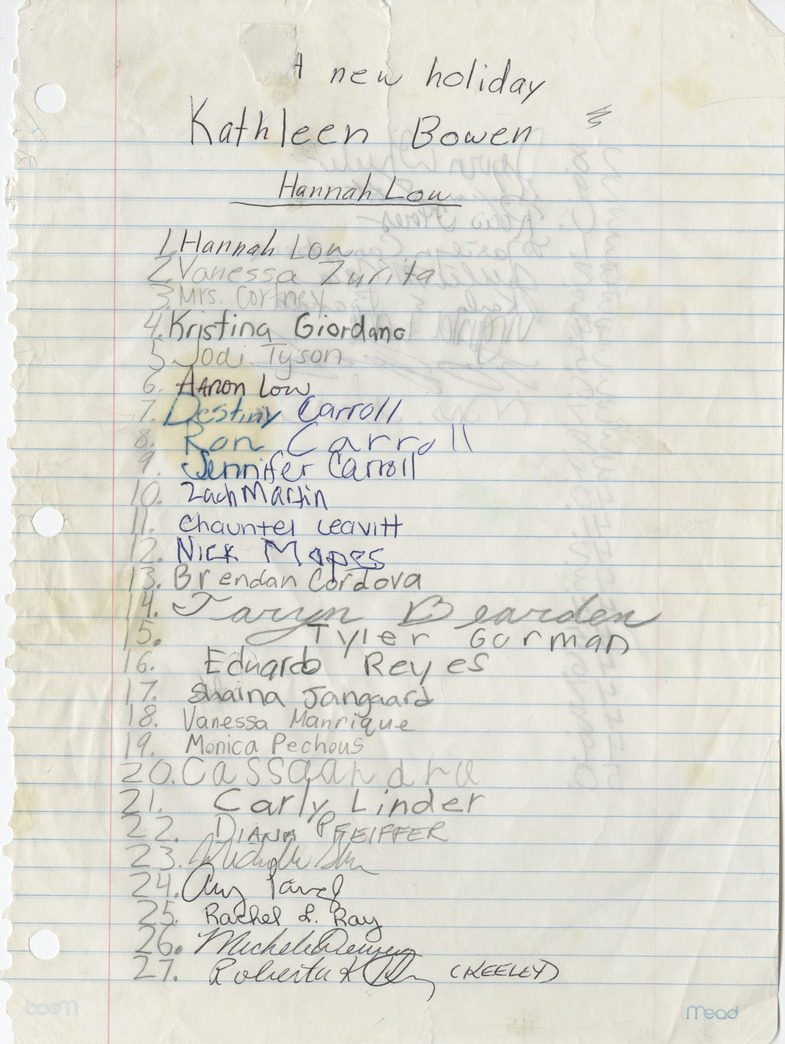 A new holiday
Kathleen Bowen
Hannah Low
1. Hannah Low
2. Vanessa Zurita
3. Mrs. Cortney
4. Kristina Giordano
5. Jodi Tyson
6. Aaron Low
7. Destiny Carroll
8. Ron Carroll
9. Jennifer Carroll
10. Zach Martin
11. Chauntel Leavitt
12. Nick Mapes
13. Brendan Cordova
14. Taryn Bearden
15. Tyler Gorman
16. Eduardo Reyes
17. Shaina Jangaard
18. Vanessa Manrique
19. Monica Pechous
20. Cassaandra
21. Carly Linder
22. DIANA PFEIFFER
23. Michelle
24. Amy
25. Rachel L. Ray
26. Michele
27. Roberta K (KEELEY)
Mead